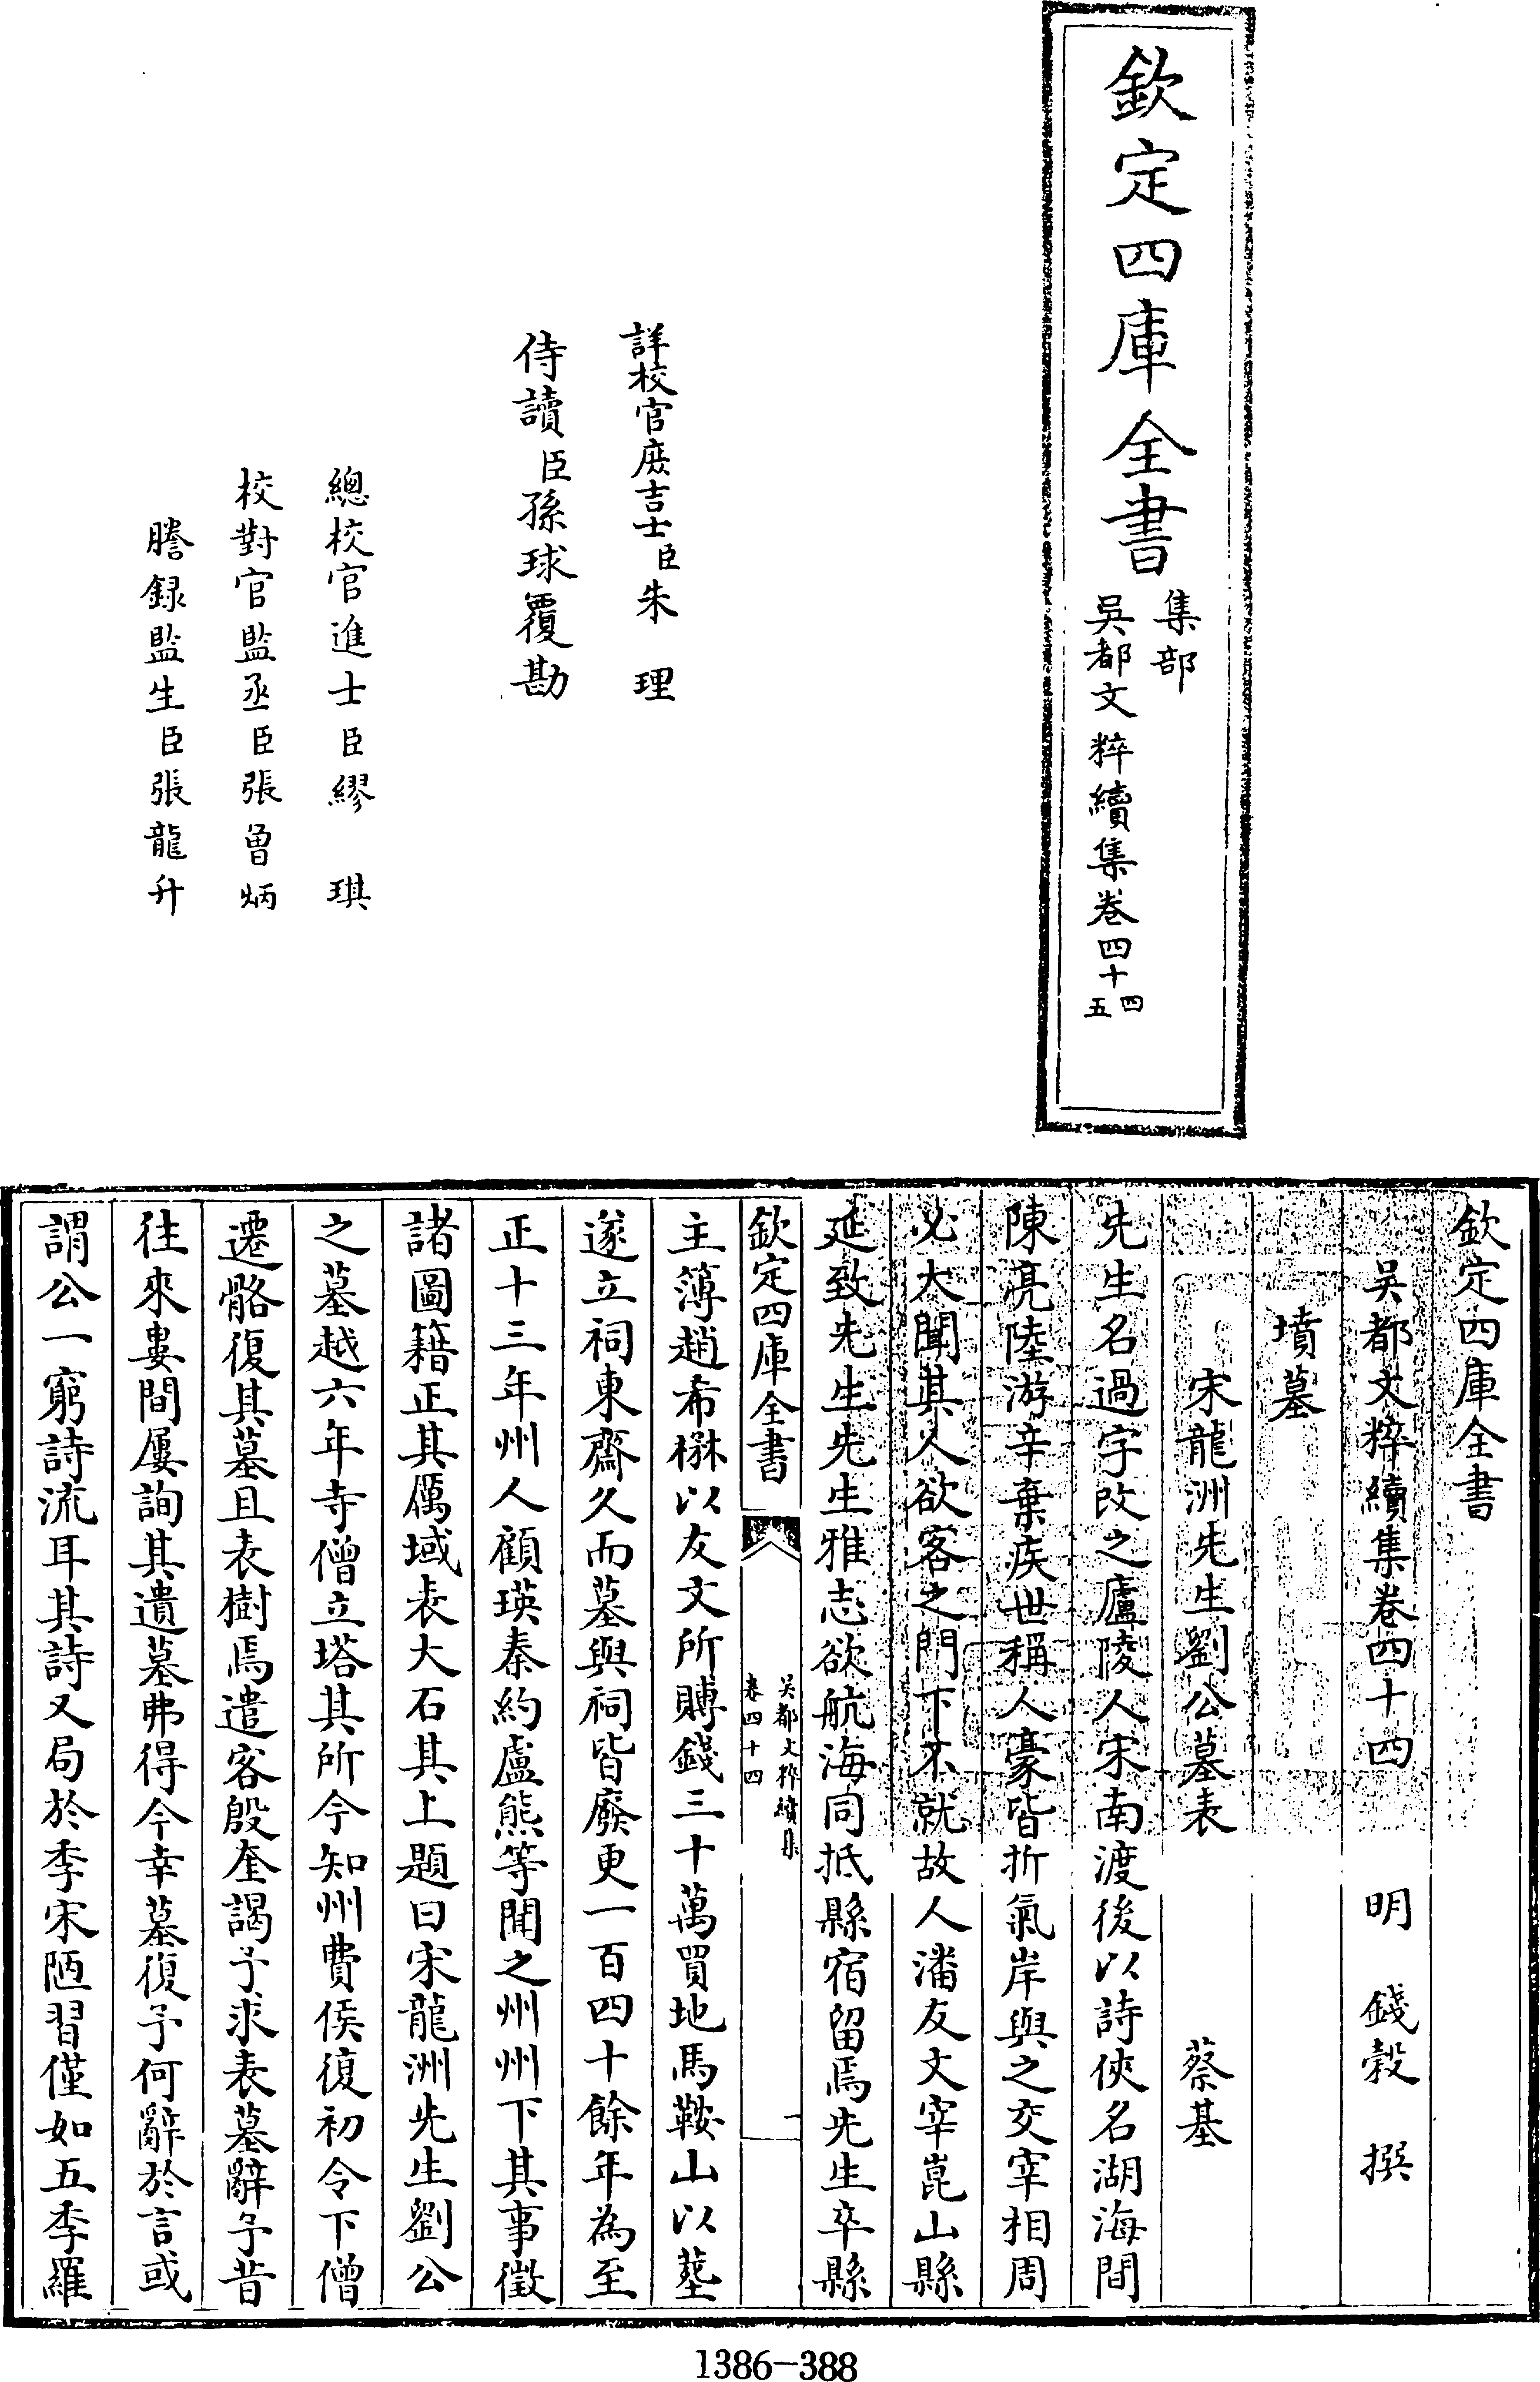 欽定四庫全書
集部
吳都文粹續集卷四十四
五
詳校官庶吉士臣朱理
侍讀臣孫球覆勘
總校官進士臣繆琪
校對官監丞臣張曾炳
謄錄監生臣張龍升
欽定四庫全書
吳都文粹續集卷四十四
明錢榖撰
墳墓
宋龍洲先生劉公墓表
蔡基
先生名過字改之廬陵人宋南渡後以詩俠名湖海間
陳亮陸游辛棄疾世稱人豪皆折氣岸與之交宰相周
必大聞其人欲客之門下不就故人潘友文宰崑山縣
延致先生先生雅志欲航海同抵縣宿留焉先生卒縣
欽定四庫全書
吴都文粹續集
卷四十四
一
主簿趙希楙以友文所賻錢三十萬買地馬鞍山以塟
遂立祠東齋久而墓與祠皆廢更一百四十餘年為至
正十三年州人顧瑛秦約盧熊等聞之州州下其事徵
諸圖籍正其厲域表大石其上題曰宋龍洲先生劉公
之墓越六年寺僧立塔其所今知州費侯復初令下僧
遷骼復其墓且表樹焉遣客殷奎謁予求表墓辭予昔
往來婁間屢詢其遺墓弗得今幸墓復予何辭於言或
謂公一窮詩流耳其詩又局於季宋陋習僅如五季羅
1386-388